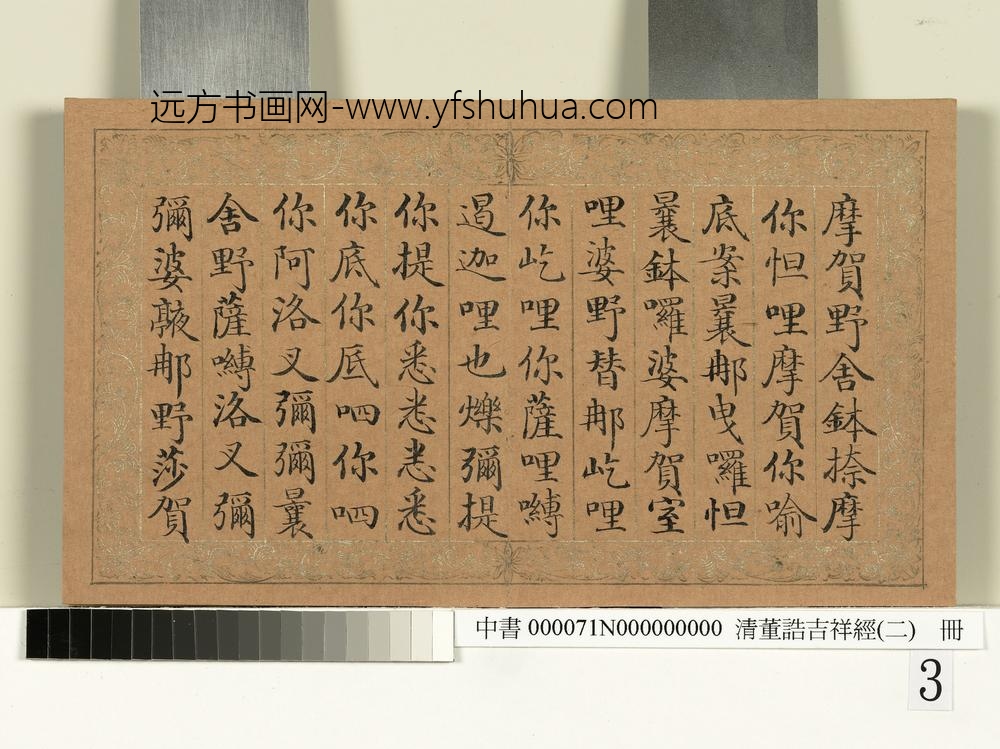 远方书画网-www.yfshuhua.com
摩賀野舍鉢捺摩
你怛哩摩賀你喻
底案曩那曳囉怛
曩鉢囉婆摩賀室
哩婆野替那屹哩
你屹哩你薩哩嚩
遏迦哩也爍彌提
你提你悉悉悉悉
你底你底呬你呬
你阿洛叉彌彌曩
舍野薩嚩洛叉彌
彌婆那野莎賀
中書 000071N000000000 清董誥吉祥經(二) 冊
3